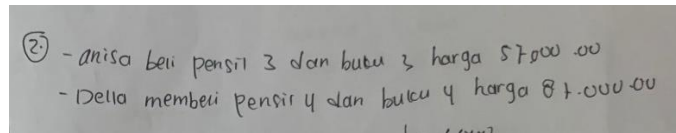 2. - anisa beli pensil 3 dan buku 3 harga 57000.00
- Della membeli pensil 4 dan buku 4 harga 87.000.00